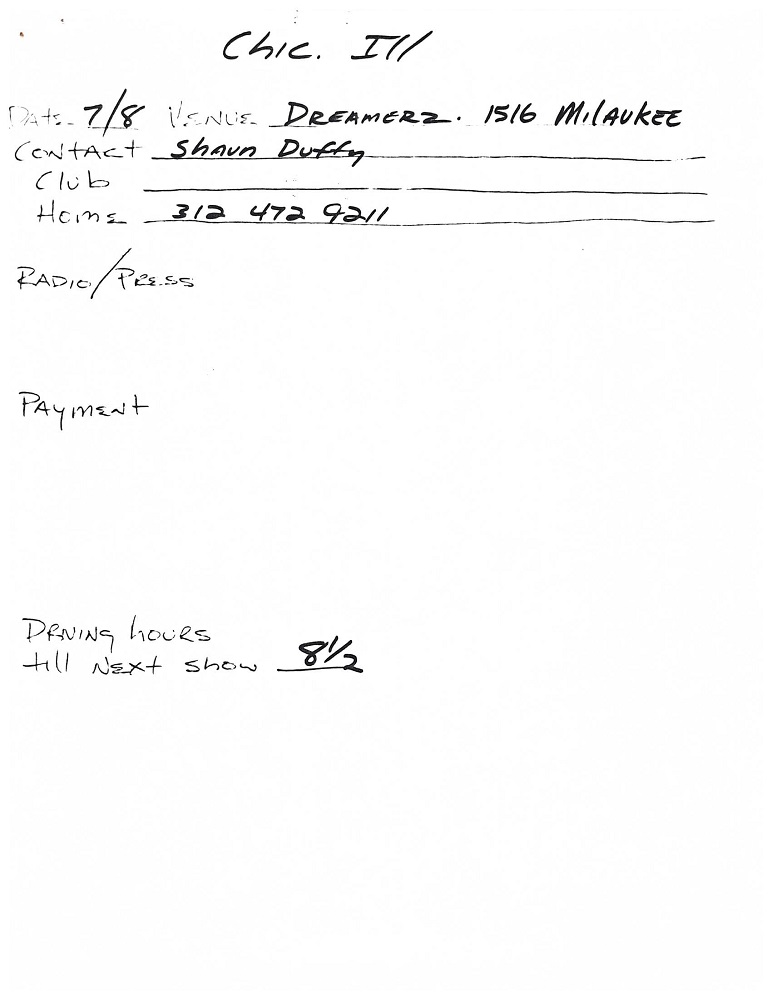 Chic. Ill
Date 7/8 Venue Dreamerz. 1516 Milaukee
Contact Shaun Duffy
Club
Home 312 472 9211
Radio/Press
Payment
Driving hours
till Next show 8 1/2